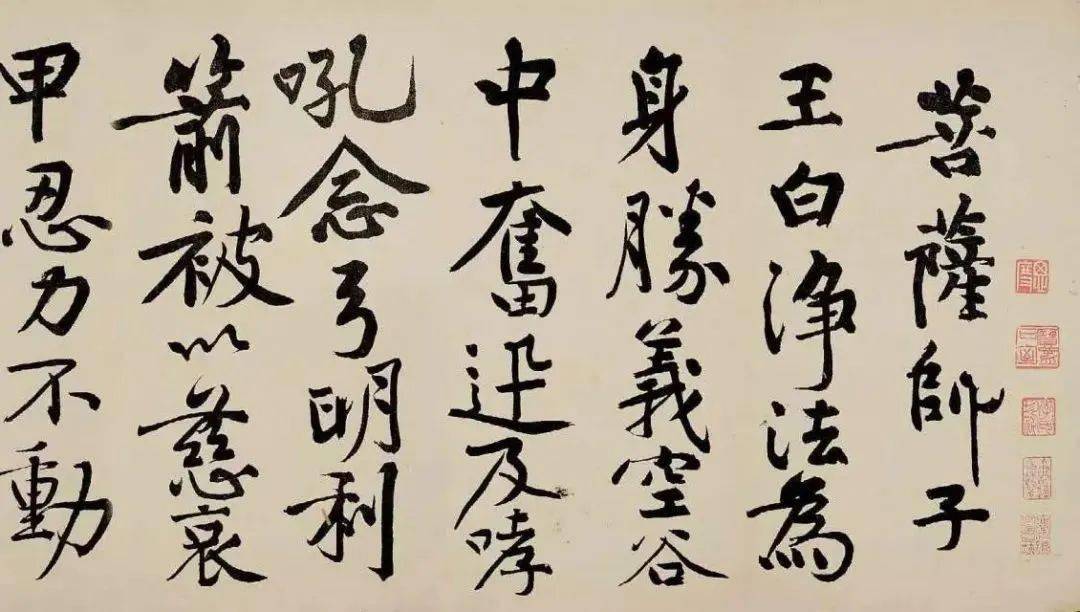 菩薩師子
王白浄法為
身勝義空谷
中奮迅及哮
吼念弓明利
箭被以慈哀
甲忍力不動